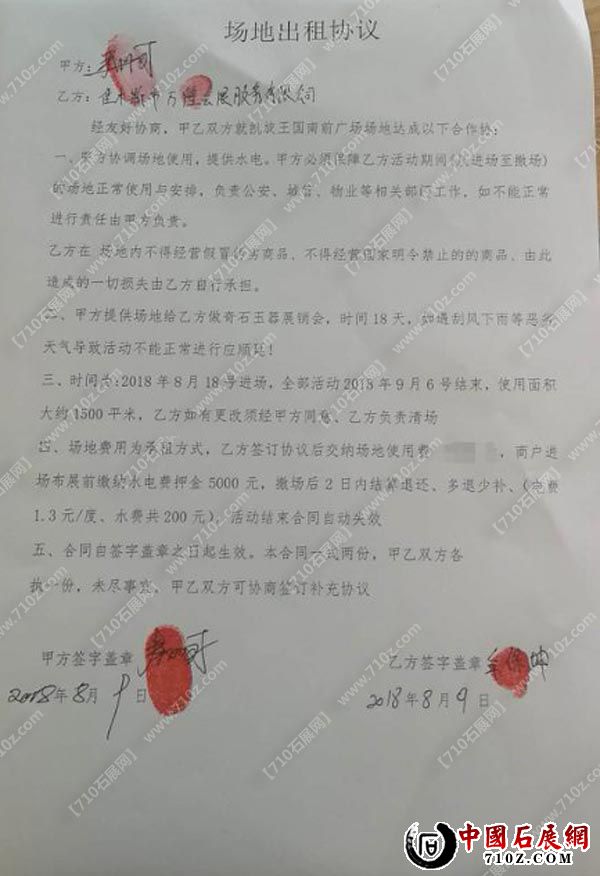 场地出租协议
甲方：
乙方：佳木斯市万隆会展服务有限公司
经友好协商，甲乙双方就凯旋王国南前广场场地达成以下合作协：
一、甲方协调场地使用，提供水电。甲方必须保障乙方活动期间(从进场至撤场)
的场地正常使用与安排，负责公安、城管、物业等相关部门工作，如不能正常
进行责任由甲方负责。
乙方在 场地内不得经营假冒伪劣商品、不得经营国家明令禁止的的商品、由此
造成的一切损失由乙方自行承担。
二、甲方提供场地给乙方做奇石玉器展销会，时间18天，如遇刮风下雨等恶劣
天气导致活动不能正常进行应顺延！
三、时间为:2018年8月18号进场，全部活动2018年9月6号结束，使用面积
大约1500平米，乙方如有更改须经甲方同意、乙方负责清场
四、场地费用为承租方式，乙方签订协议后交纳场地使用费 ，商户进
场布展前缴纳水电费押金5000元，撤场后2日内结算退还、多退少补、(电费
1.3元/度、水费共200元)，活动结束合同自动失效
五、合同自签字盖章之日起生效。本合同一式两份，甲乙双方各
执一份，未尽事宜、甲乙双方可协商签订补充协议
甲方签字盖章
2018年8月9日
乙方签字盖章
2018年8月9日
【710石展网】
www.710z.com
中國石展網
710Z.COM